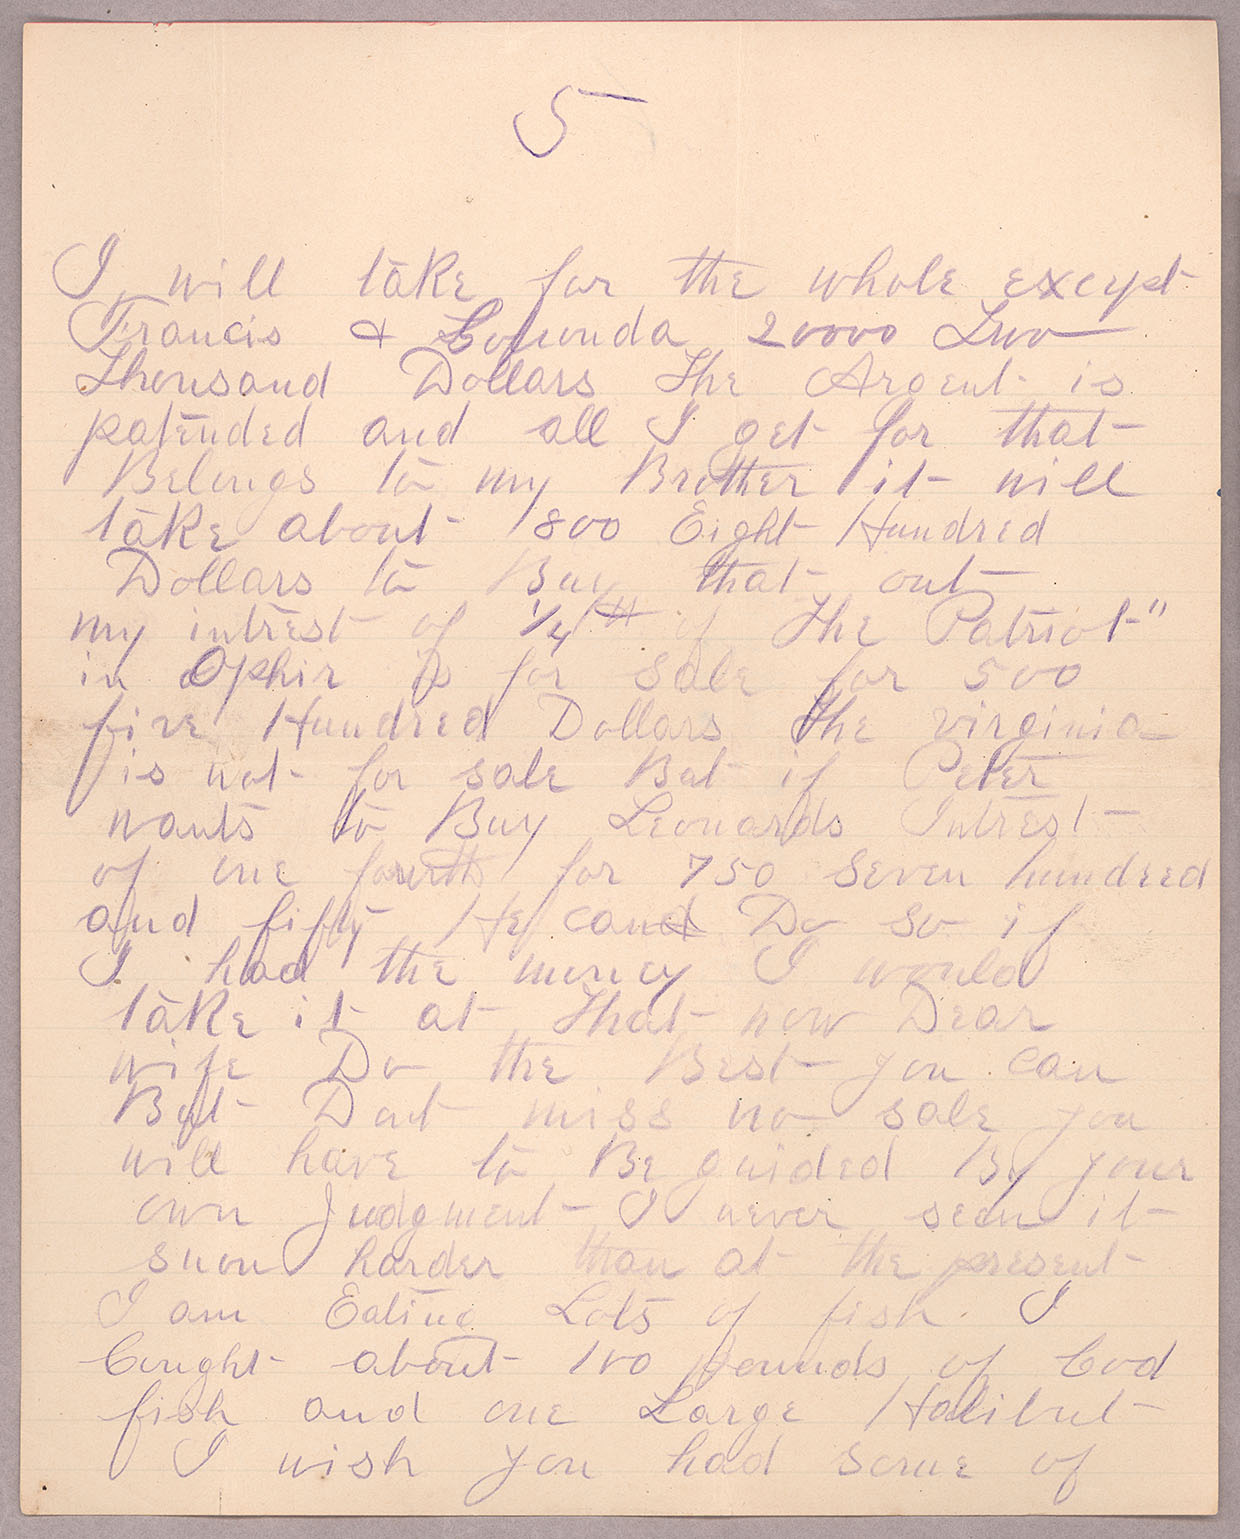 5
I will take for the whole except
Francis & 20000 Two
Thousand Dollars The Argent is
patended and all I get for that
Belongs to my Brother it will
take about 800 Eight Hundred
Dollars to Buy that out
my intrest of 1/4th of The Patriot"
in Ophir is for Sale for 500
five Hundred Dollars The virginia
is not for sale But if Peter
wants to Buy Leonards Intrest
of one fourth for 750 Seven hundred
and fifty He can Do so if
I had the money I would
take it at That now Dear
wife Do the Best you can
But Dont miss no sale you
will have to Be guided By your
own Judgment I never seen it
snow harder than at the present
I am Eating Lots of fish. I
Caught about 100 pounds of Cod
fish and one Large Halibut
I wish you had some of